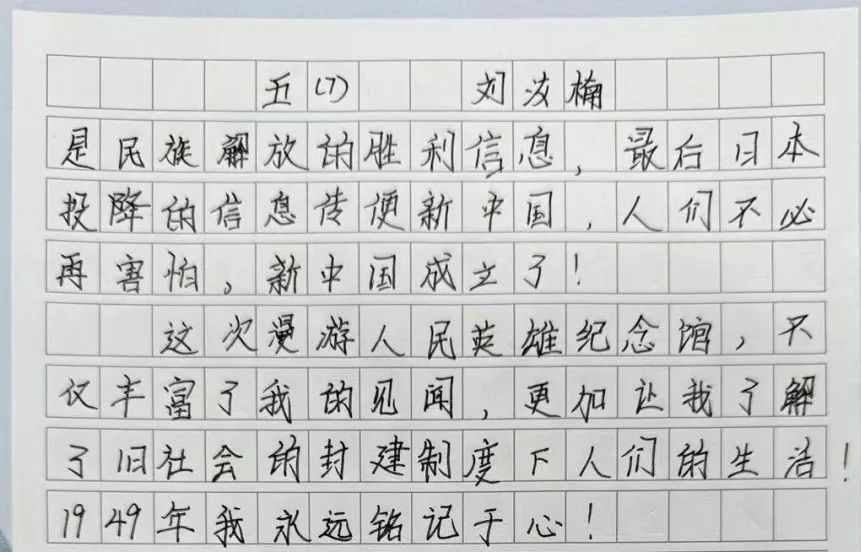 五(7) 刘汝楠
是民族解放的胜利信息，最后日本
投降的信息传便新中国，人们不必
再害怕。新中国成立了！
这次漫游人民英雄纪念馆，不
仅丰富了我的见闻，更加让我了解
了旧社会的封建制度下人们的生活！
1949年我永远铭记于心！